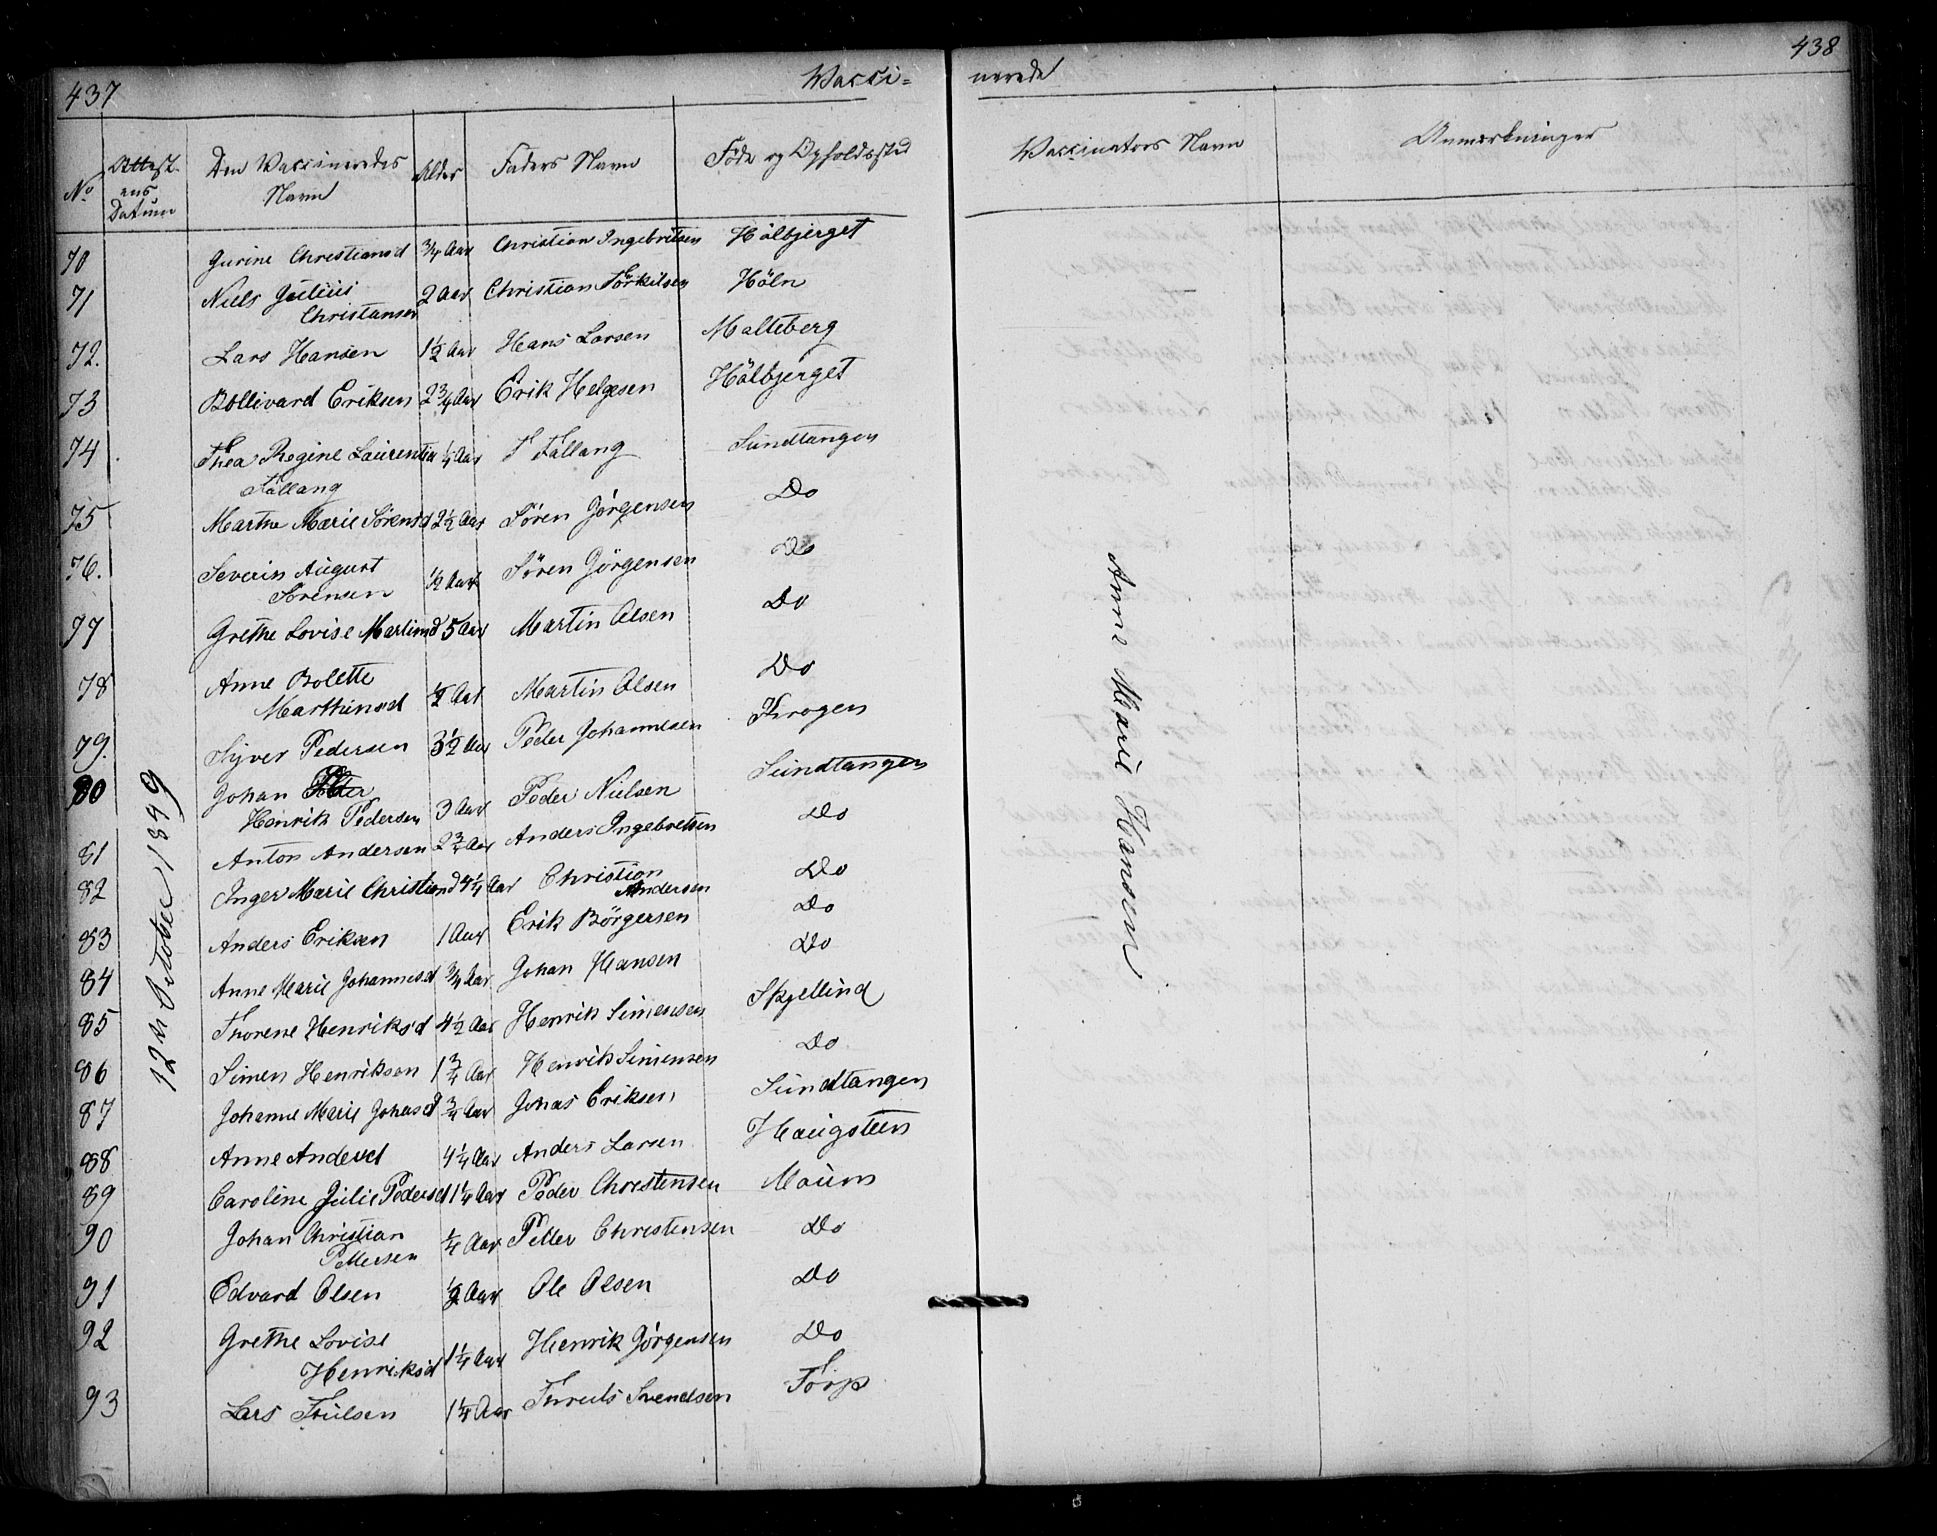 437
Vacci=
No
Attest-
ens
Datum
Den Vaccineredes
Navn
Alder
Faders Navn
Føde og Opholdssted
12te October 1849
70 Gurine Christiansd 3/4 Aar Christian Ingebretsen Hólbjerget
71 Niels Julius 2 Aar Christian Törkilsen Höln
Christiansen
72. Lars Hansen 1 1/2 Aar Hans Larsen Malteberg
73 Bollivard Eriksen 2 3/4 Aar Erik Helgesen Hólbjerget
74 Thea Regine Laurentia 1/4 Aar Fallang Sundtangen
Fallang
75 Marthe Marie Sörensd 2 1/2 Aar Sören Jörgensen Do
76. Severin August 1/2 Aar Sören Görgensen Do
Sörensen
77 Grethe Lovise Martinsd 5 Aar Martin Olsen Do
78 Anne Bolette 1/2 Aar Martin Olsen Do
Marthinsd
79. Syver Pedersen 3 1/2 Aar Peder Johannesen Krogen
80 Johan Peder Sundtangen
Henrik Pedersen 3 Aar Peder Nielsen
81 Anton Andersen 2 3/4 Aar Anders Ingebretsen Do
82 Inger Marie Christiansd 4 1/4 Aar Christian Do
Andersen
83 Anders Eriksen 1 Aar Erik Börgersen Do
84 Anne Marie Johannesd 3/4 Aar Johan Hansen Do
85 Thorene Henriksd 4 1/2 Aar Henrik Simensen Skjellind
86 Simen Henriksen 1 3/4 Aar Henrik Simensen Do
87 Johanne Marie Johasd 3/4 Aar Johas Eriksen Sundtangen
88 Anne Andersd 4 1/4 Aar Anders Larsen Haugsteen
89 Caroline Julie Pedersd 1 1/4 Aar Peder Christensen Mourn
90 Johan Christian 1/4 Aar Petter Christensen Do
Pettersen
91 Edvard Olsen 1/2 Aar Ole Olsen Do
92 Grethe Lovise 1 1/4 Aar Henrik Jörgensen Do
Henriksd
93 Lars Trulsen 1 1/4 Aar Truls Svendsen Torp
438
nerede
Vaccinators Navn
Anmærkninger
Anne Marie Hansen